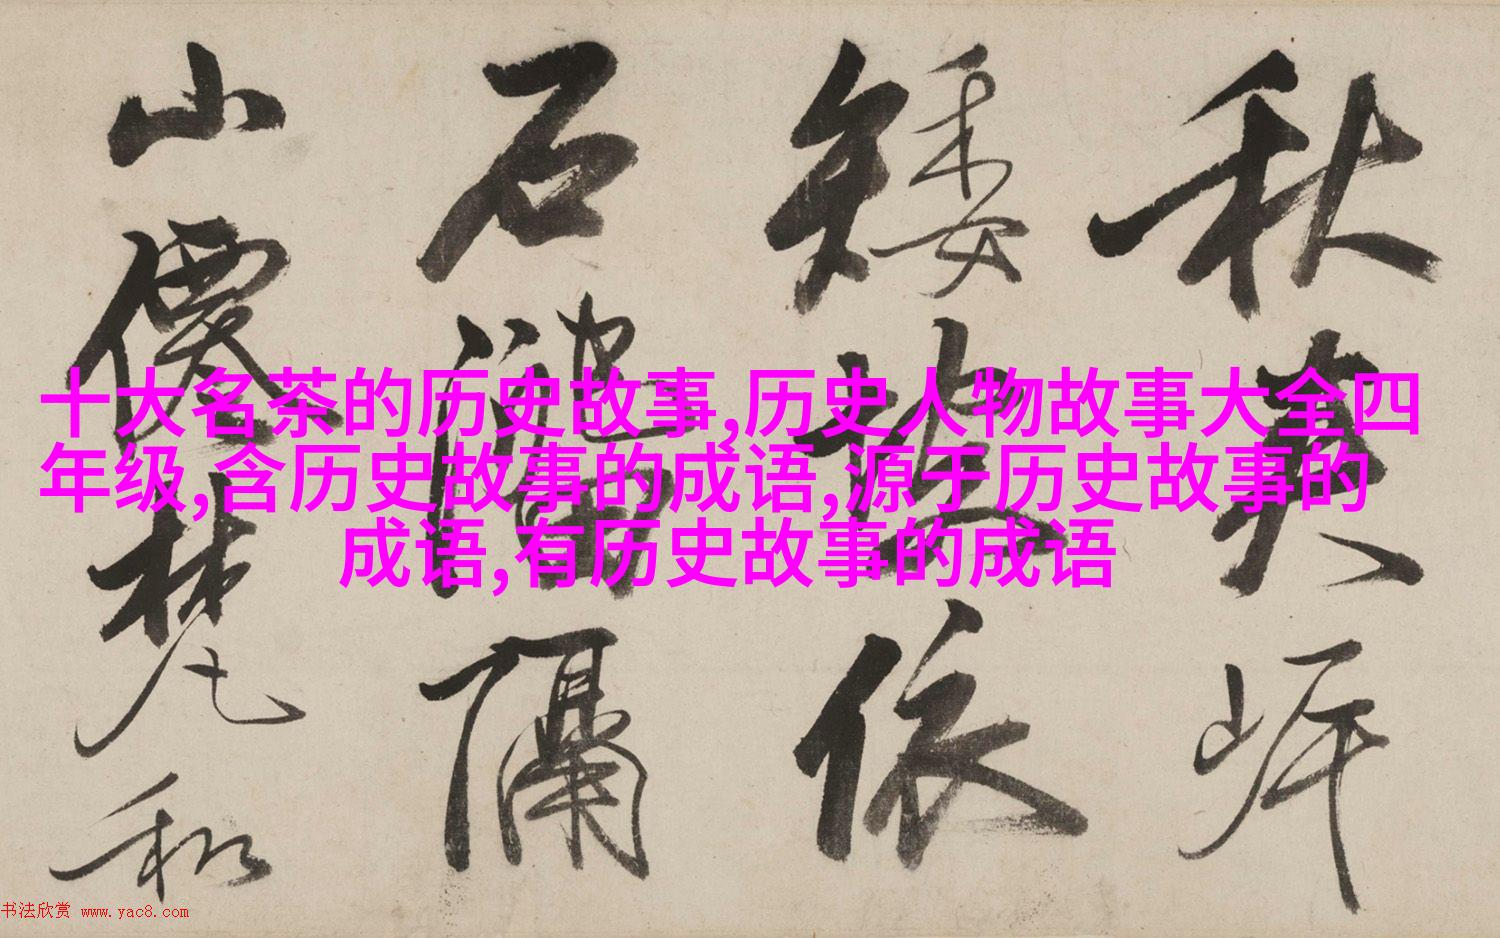 秋英岸
矮故依
石隔
山僕梵和
十大名茶的历史故事,历史人物故事大全四
年级,含历史故事的成语,源于历史故事的
成语,有历史故事的成语
书法欣赏 www.yac8.com